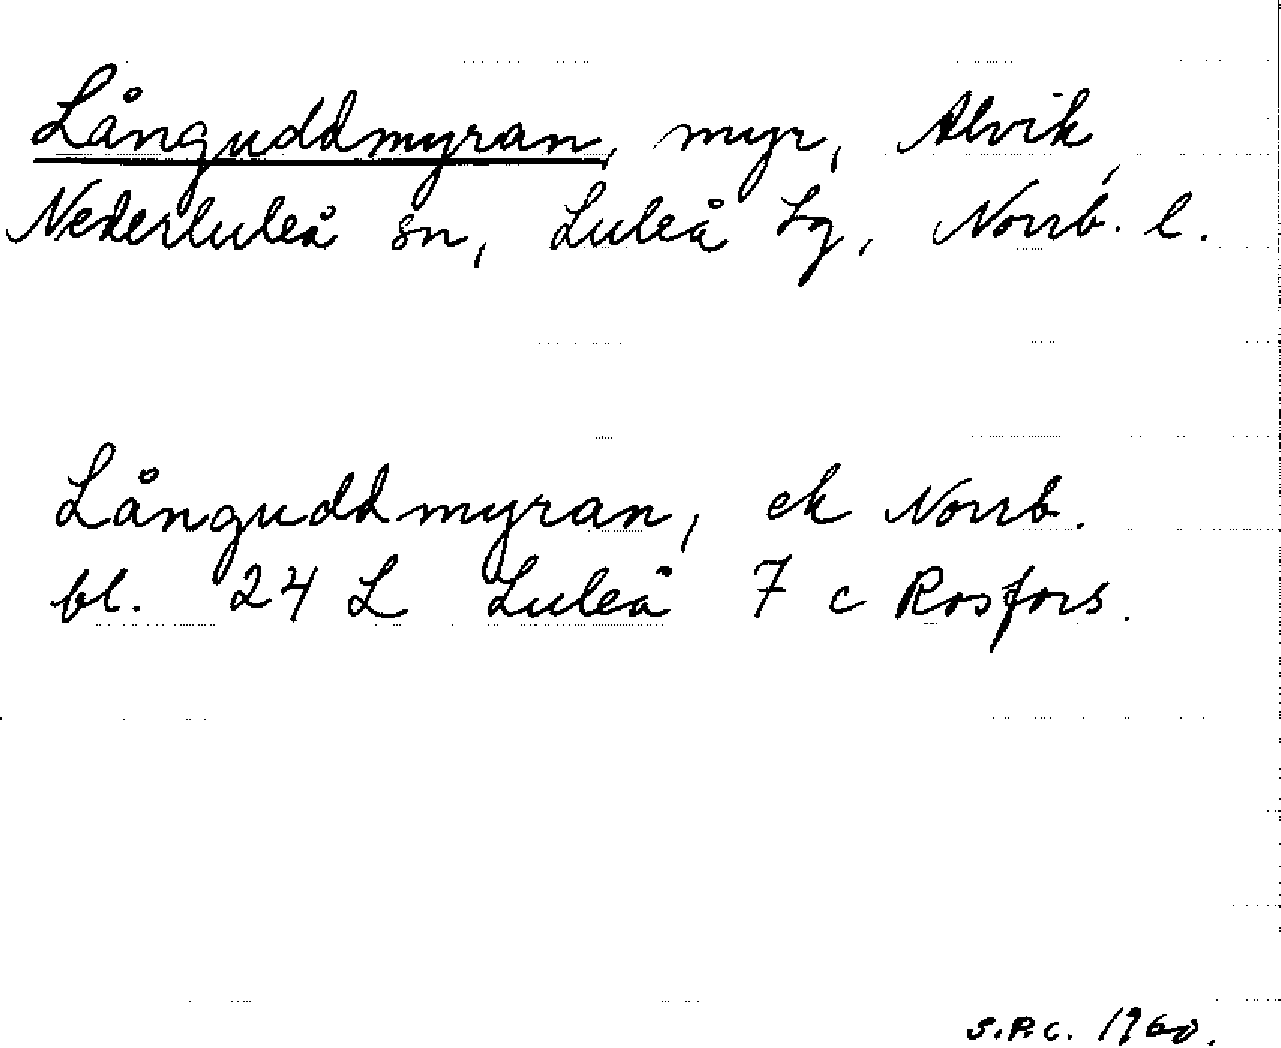 Långuddmyran, myr, Alvik,
Nederluleå sn, Luleå tg, Norrb. l.
Långuddmyran, ek Norrb.
bl. 24 L Luleå 7 c Rosfors.
S.P.C. 1960.